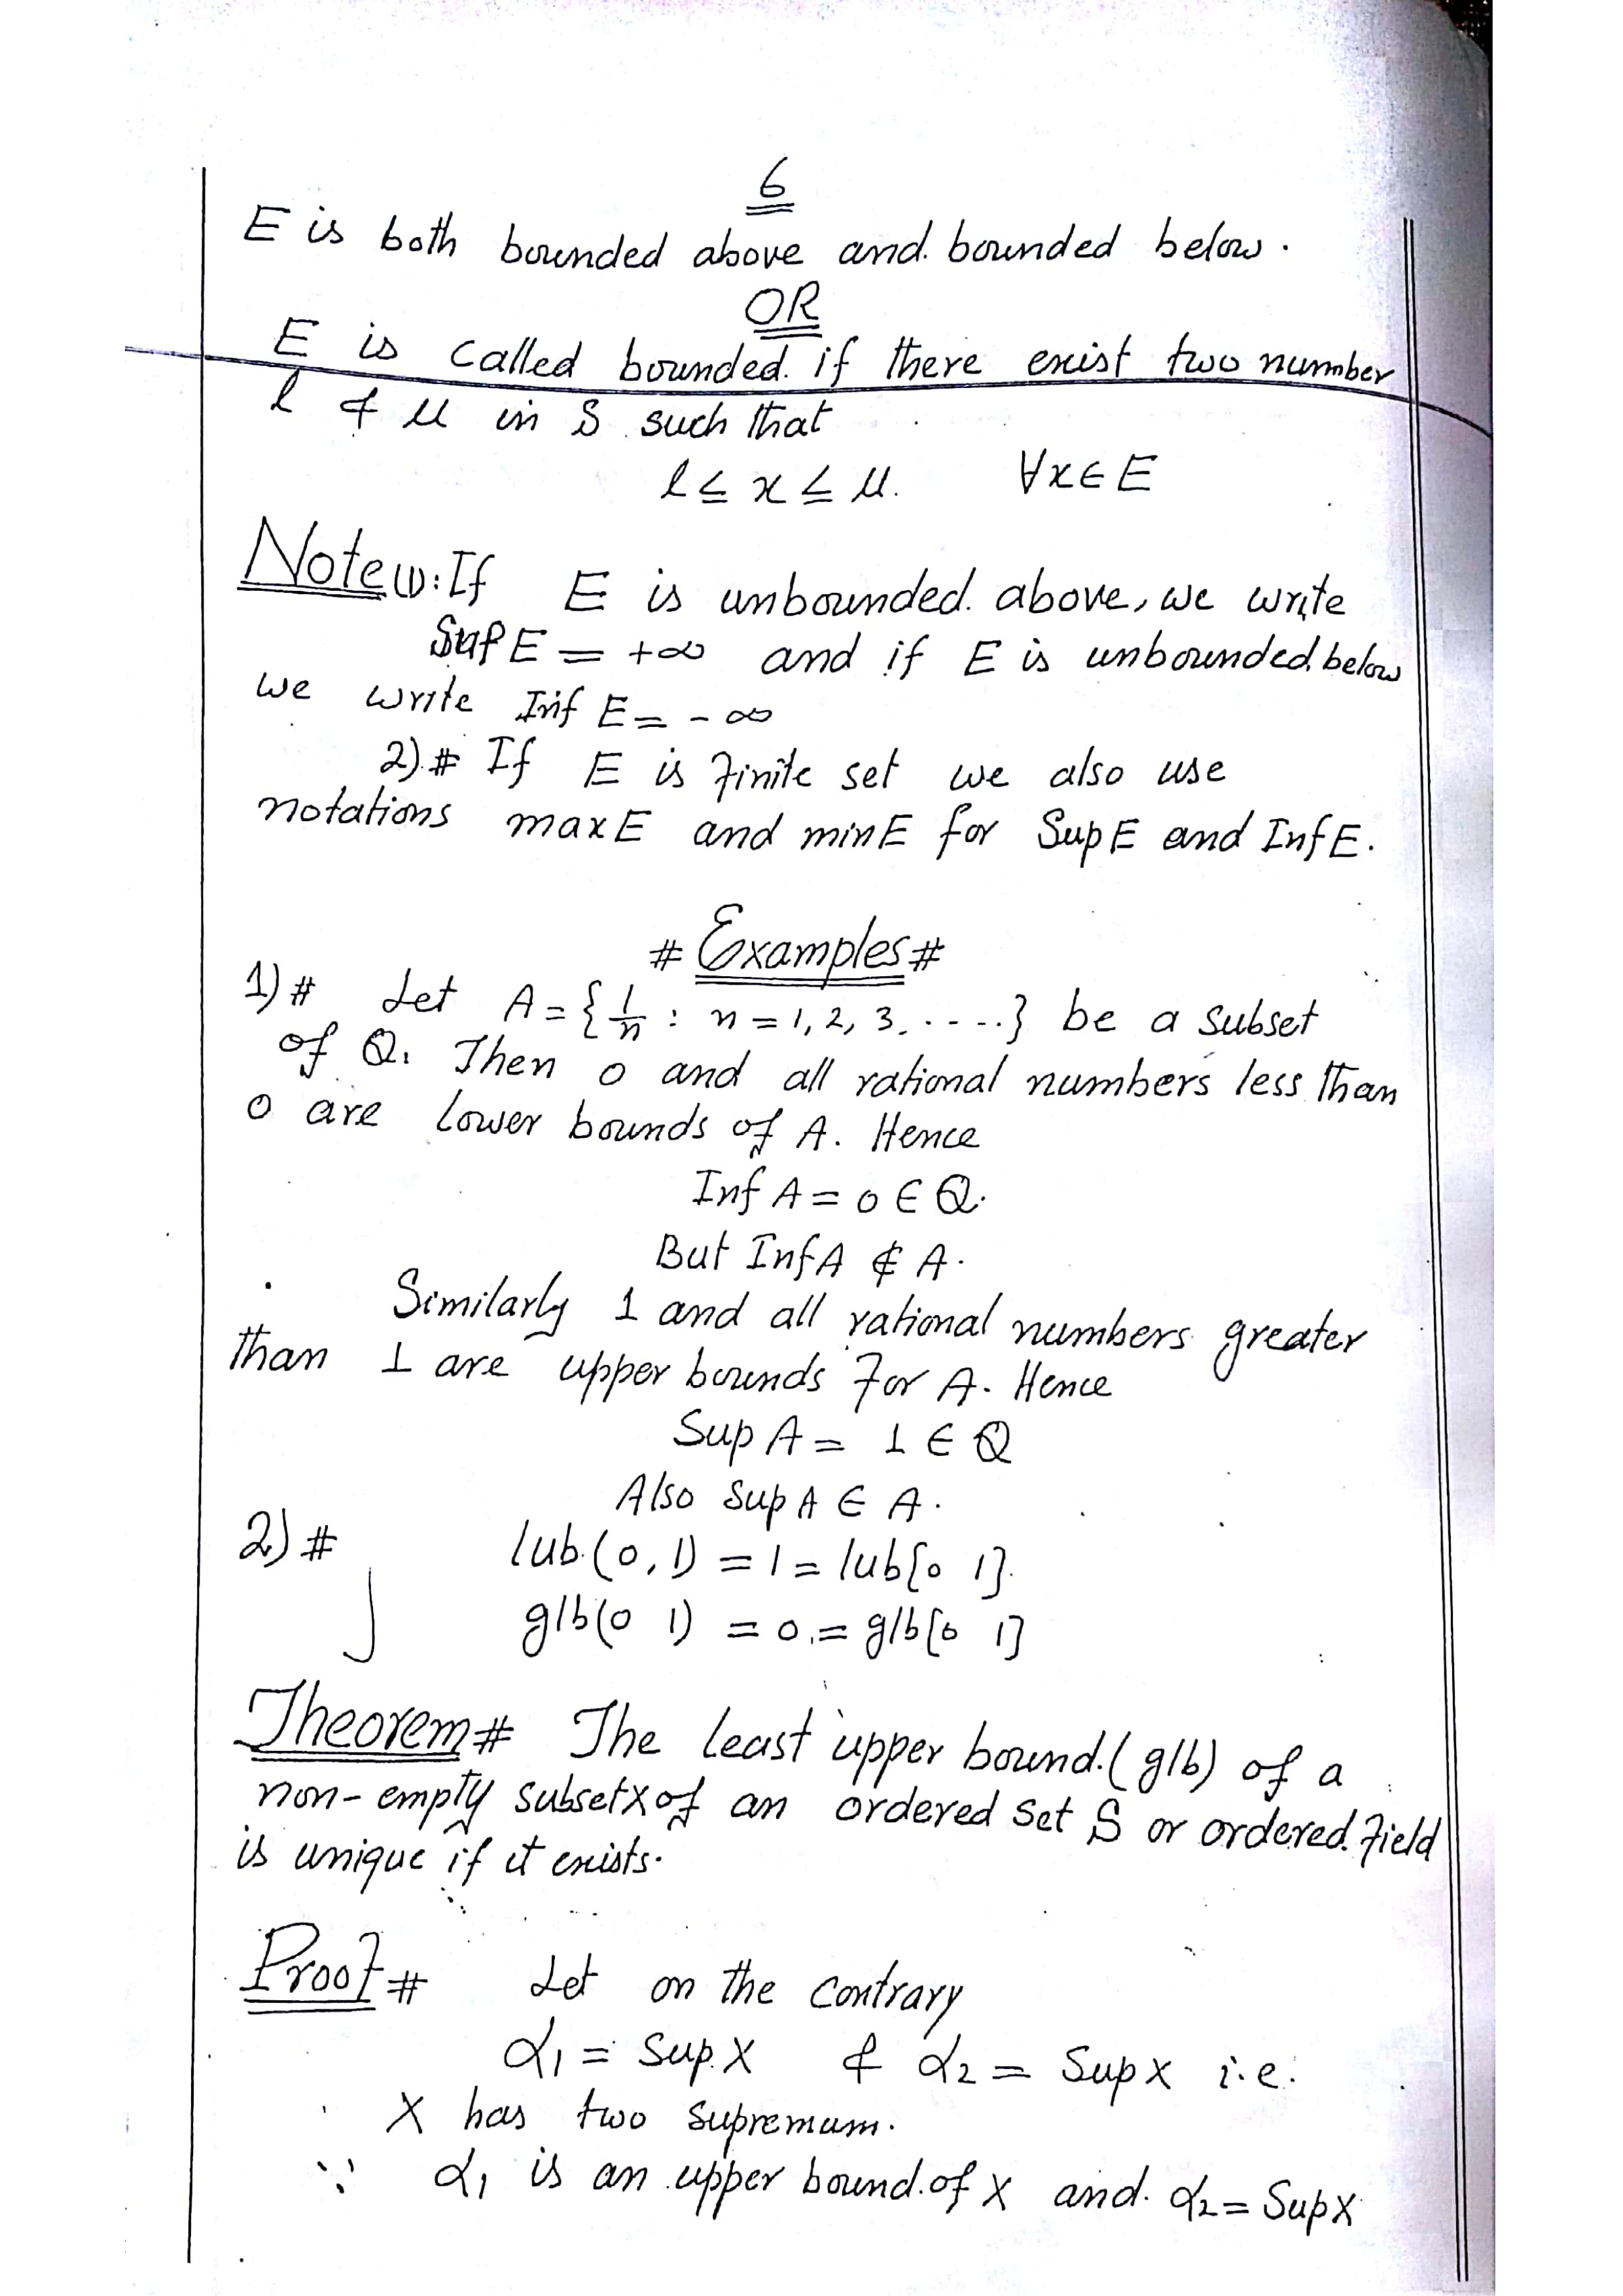 6
E is both bounded above and bounded below.
OR
E is called bounded if there exist two number
l & u in S such that
l ≤ x ≤ u. ∀x∈E
Note(1): If E is unbounded above, we write
Sup E = +∞ and if E is unbounded below
we write Inf E = -∞
2)# If E is finite set we also use
notations max E and min E for Sup E and Inf E.
# Examples #
1)# Let A = {1/n : n = 1, 2, 3, .....} be a subset
of Q. Then 0 and all rational numbers less than
0 are lower bounds of A. Hence
Inf A = 0 ∈ Q.
But Inf A ∉ A.
Similarly 1 and all rational numbers greater
than 1 are upper bounds for A. Hence
Sup A = 1 ∈ Q
Also Sup A ∈ A.
2)# lub(0, 1) = 1 = lub[0 1]
glb(0 1) = 0 = glb[0 1]
Theorem# The least upper bound (glb) of a
non-empty subset X of an ordered set S or ordered field
is unique if it exists.
Proof# Let on the contrary
α1 = Sup X & α2 = Sup X i.e.
X has two supremum.
∵ α1 is an upper bound of X and α2 = Sup X